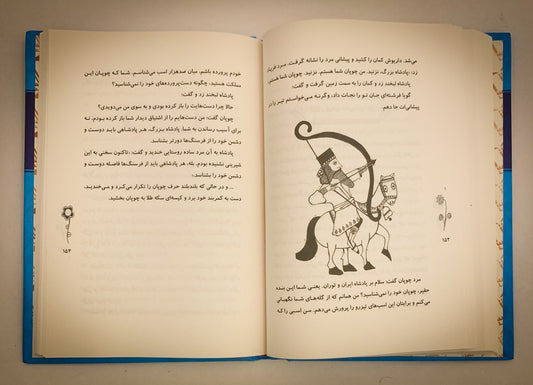 می‌شد. داریوش کمان را کشید و پیشانی مرد را نشانه گرفت. مرد فریاد
زد: پادشاه بزرگ، نزنید. من چوپان شما هستم. نزنید. چوپان شما هستم.
پادشاه لبخند زد و کمان را به سمت زمین گرفت و گفت:
گویا فرشته‌ای جان تو را نجات داد، وگرنه می‌خواستم تیر را در
پیشانی‌ات جا دهم.
مرد چوپان گفت: سلام بر پادشاه ایران و توران. یعنی شما این بنده
حقیر، چوپان خود را نمی‌شناسید؟ من همانم که از گله‌های شما نگهبانی
می‌کنم و برایتان این اسب‌های تیزرو را پرورش می‌دهم. من اسبی را که
۱۵۲
خودم پرورده باشم، میان صدهزار اسب می‌شناسم. شما که چوپان این
مملکت هستید، چگونه دست‌پرورده‌های خود را نمی‌شناسید؟
پادشاه لبخند زد و گفت:
حالا چرا دست‌هایت را باز کرده بودی و به سوی من می‌دویدی؟
چوپان گفت: من دست‌هایم را از اشتیاق دیدار شما باز کرده بودم، نه
برای آسیب رساندن به شما. پادشاه بزرگ، هر پادشاهی باید دوست و
دشمن خود را از فرسنگ‌ها دورتر بشناسد.
پادشاه به آن مرد ساده روستایی خندید و گفت: تاکنون سخنی به این
شیرینی نشنیده بودم. بله، هر پادشاهی باید از فرسنگ‌ها فاصله دوست و
دشمن خود را بشناسد.
... و در حالی که بلندبلند حرف چوپان را تکرار می‌کرد و می‌خندید،
دست به کمربند خود برد و کیسه‌ای سکه طلا به چوپان بخشید.
۱۵۳